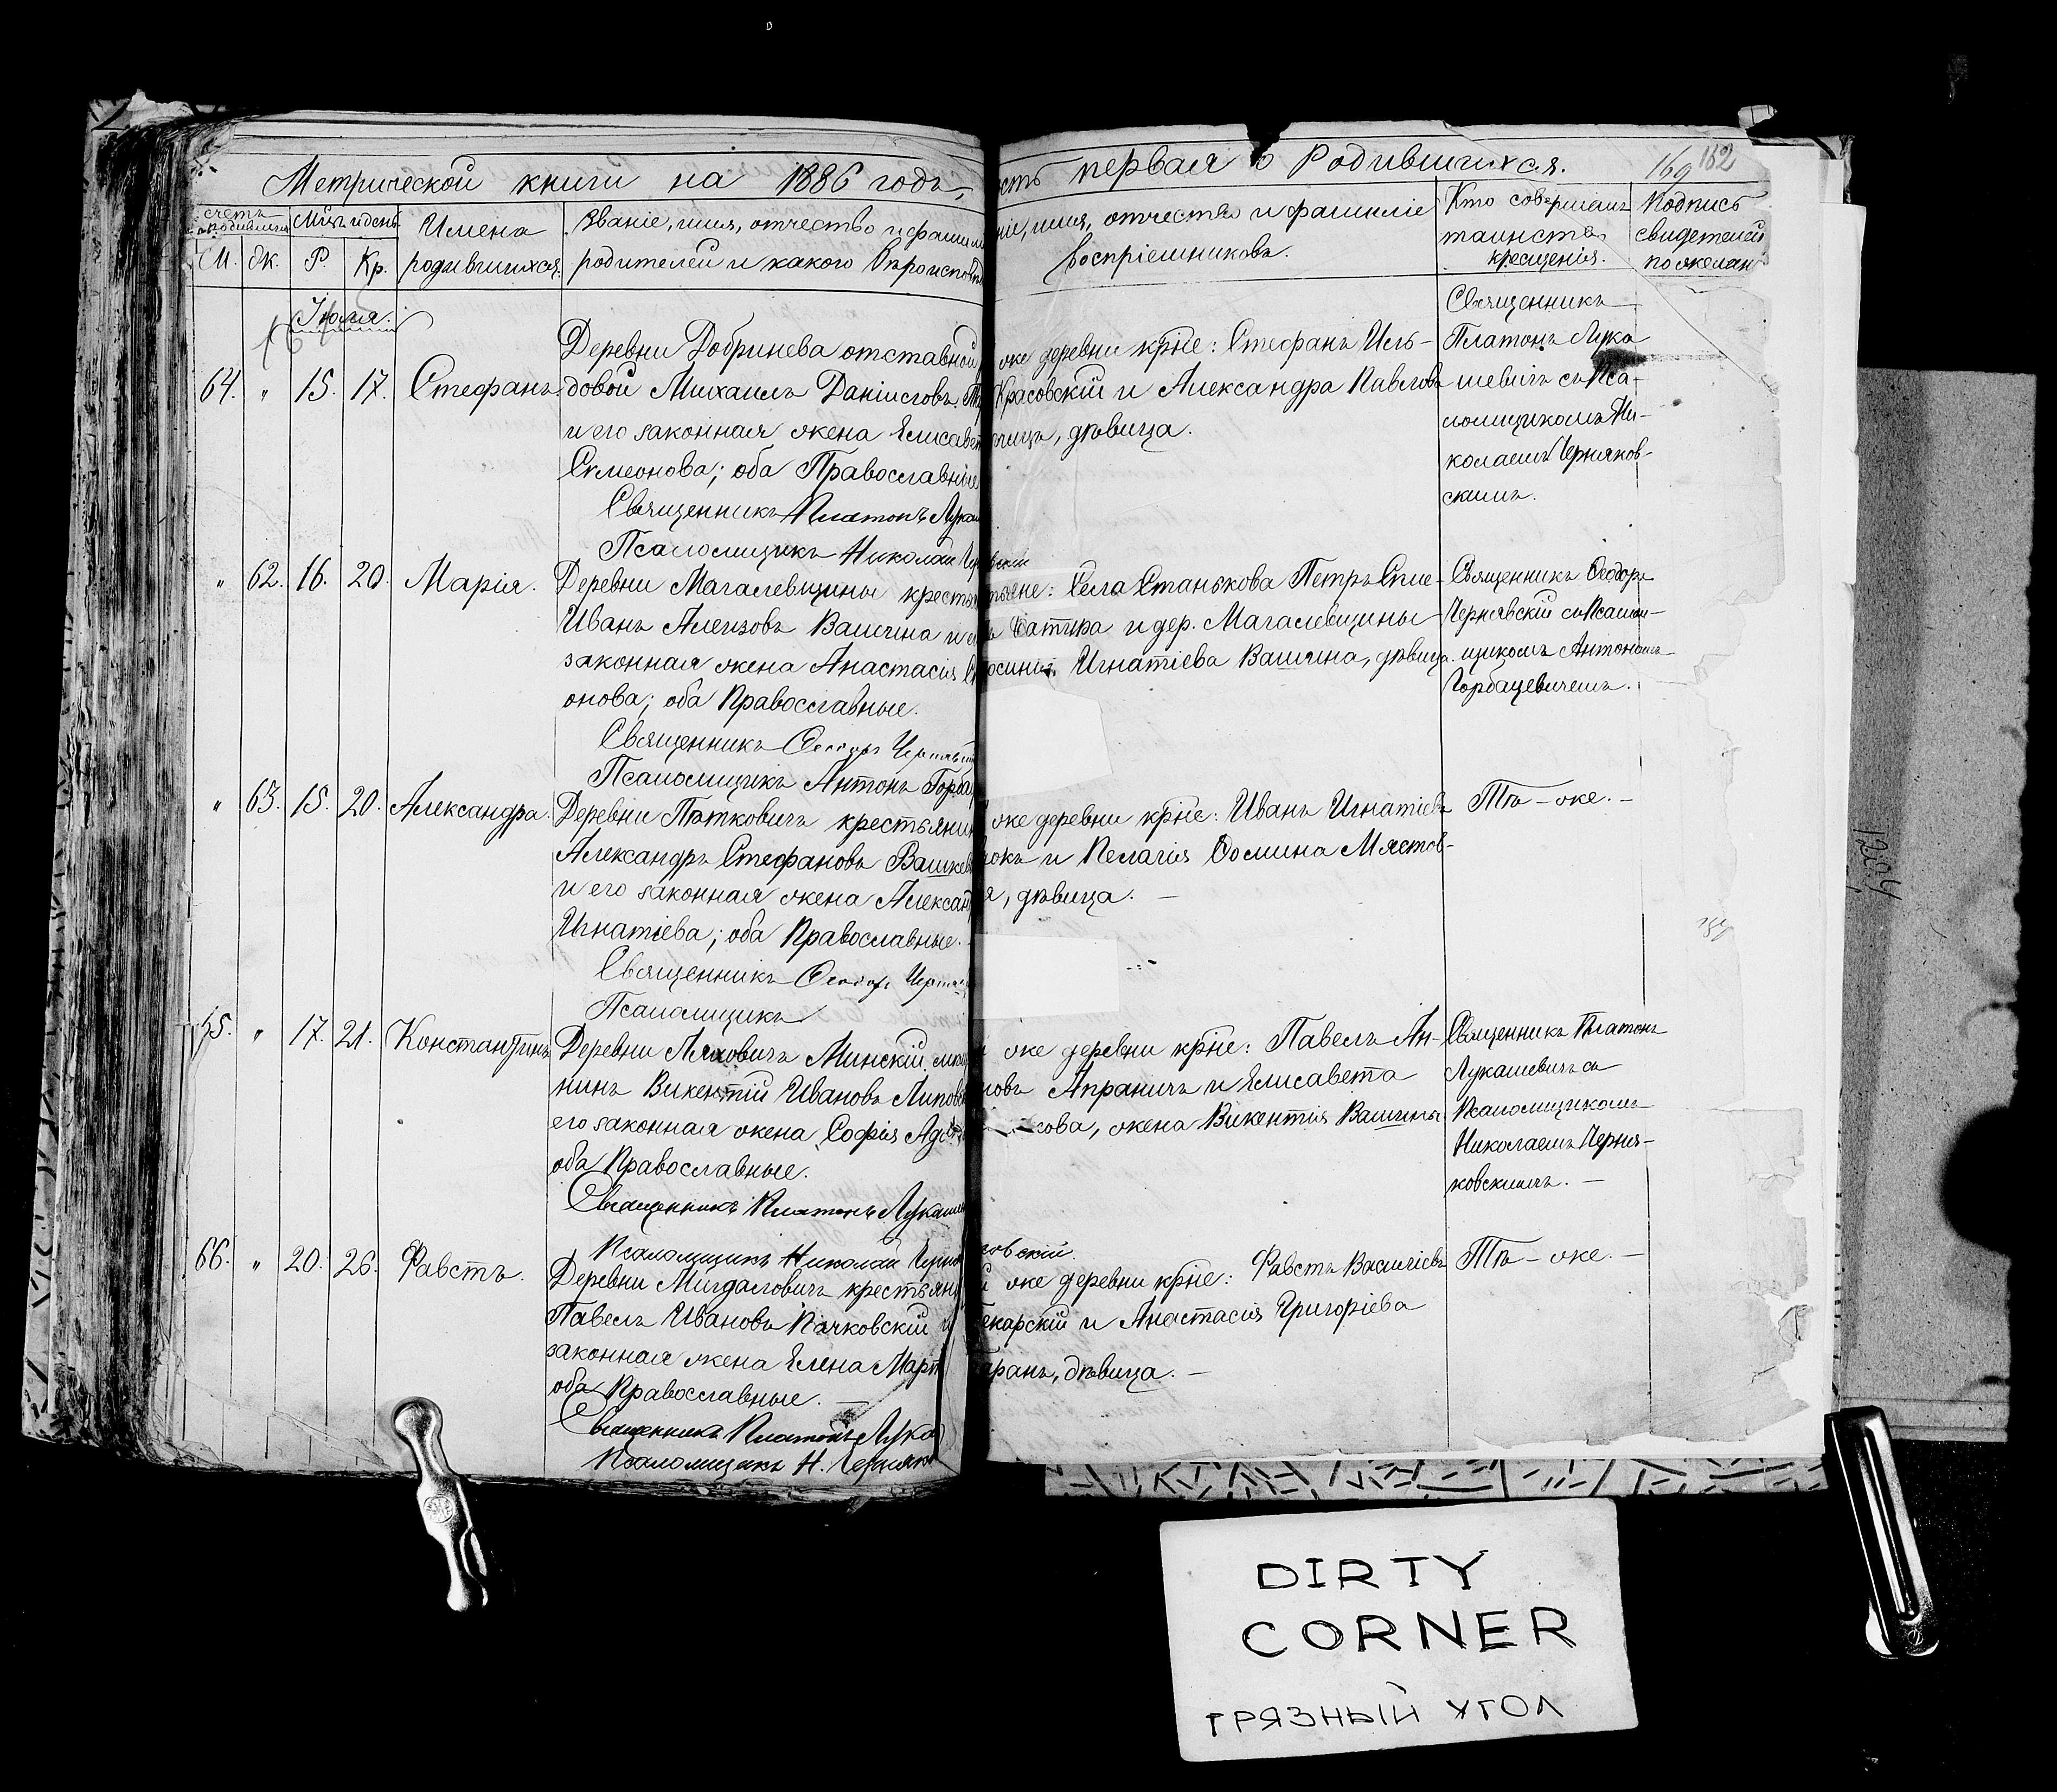 Метрической книги на 1886 годъ,
сть первая о Родившихся.
169 182
счетъ родившихся
Мцъ и день
Имена родившихся.
Званіе, имя, отчество и фамилі
родителей и какого вѣроисповѣд
іе, имя, отчество и фамиліе
воспріемниковъ.
Кто совершалъ
таинство
крещенія.
Подпись
свидетелей
по желан
М. Ж. Р. Кр.
Іюля.
64. " 15. 17. Стефанъ.
Деревни Добринева отставной
довой Михаилъ Даніиловъ
и его законная жена Елисавет
Симеонова; оба Православные
Священникъ Платонъ Лукаш
Псаломщикъ Николай
же деревни крне: Стефанъ Иль-
Красовскій и Александра Павлов
дѣвица.
Священникъ
Платонъ Лука
шевичъ съ Пса-
ломщикомъ Ни-
колаемъ Черняков-
скимъ.
" 62. 16. 20. Марія.
Деревни Магалевщины кресть
Иванъ Алеизовъ Вашина и е
законная жена Анастасія С
онова; оба Православные.
Священникъ Ѳеодоръ
Псаломщикъ Антонъ Горба
тьяне: Села Станькова Петръ
и дер. Магалевщины
Игнатіева Вашина, дѣвица.
Священникъ Ѳеодоръ
Чернявскій съ Псалом-
щикомъ Антономъ
Горбацевичемъ.
" 63. 15. 20. Александра.
Деревни Пятковичъ крестьянин
Александръ Стефановъ Вашкев
и его законная жена Алексан
Игнатіева; оба Православные.
Священникъ Ѳеодоръ
Псаломщикъ
же деревни крне: Иванъ Игнатіевъ
и Пелагія Ѳомина Мястов-
я, дѣвица. —
Тѣ-же. —
65. " 17. 21. Константинъ
Деревни Ляховичъ Минскій мѣща
нинъ Викентій Ивановъ Липов
его законная жена Софія
оба Православные.
Священникъ Платонъ Лукаше
Псаломщикъ Николай Черня
ковскій.
же деревни крне: Павелъ Ан-
новъ Апраничъ и Елисавета
кова, жена Викентія Вашины
Священникъ Платонъ
Лукашевичъ съ
Псаломщикомъ
Николаемъ Черня-
ковскимъ. —
66. " 20. 26. Фавстъ.
Деревни Мигдаловичъ крестьян
Павелъ Ивановъ Пачковскій и
законная жена Елена Март
оба Православные. —
Священникъ Платонъ Лука
Псаломщикъ Н. Черняк
же деревни крне: Фавстъ Василіевъ
екарскій и Анастасія Григоріева
аранъ, дѣвица. —
Тѣ-же. —
DIRTY
CORNER
ГРЯЗНЫЙ УГОЛ